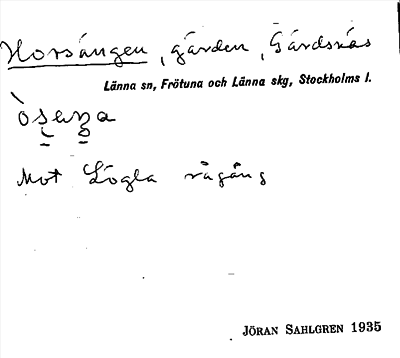 Horsängen, gärden, Gärdsnäs
Länna sn, Frötuna och Länna skg, Stockholms l.
Mot Lögla rågång
JÖRAN SAHLGREN 1935